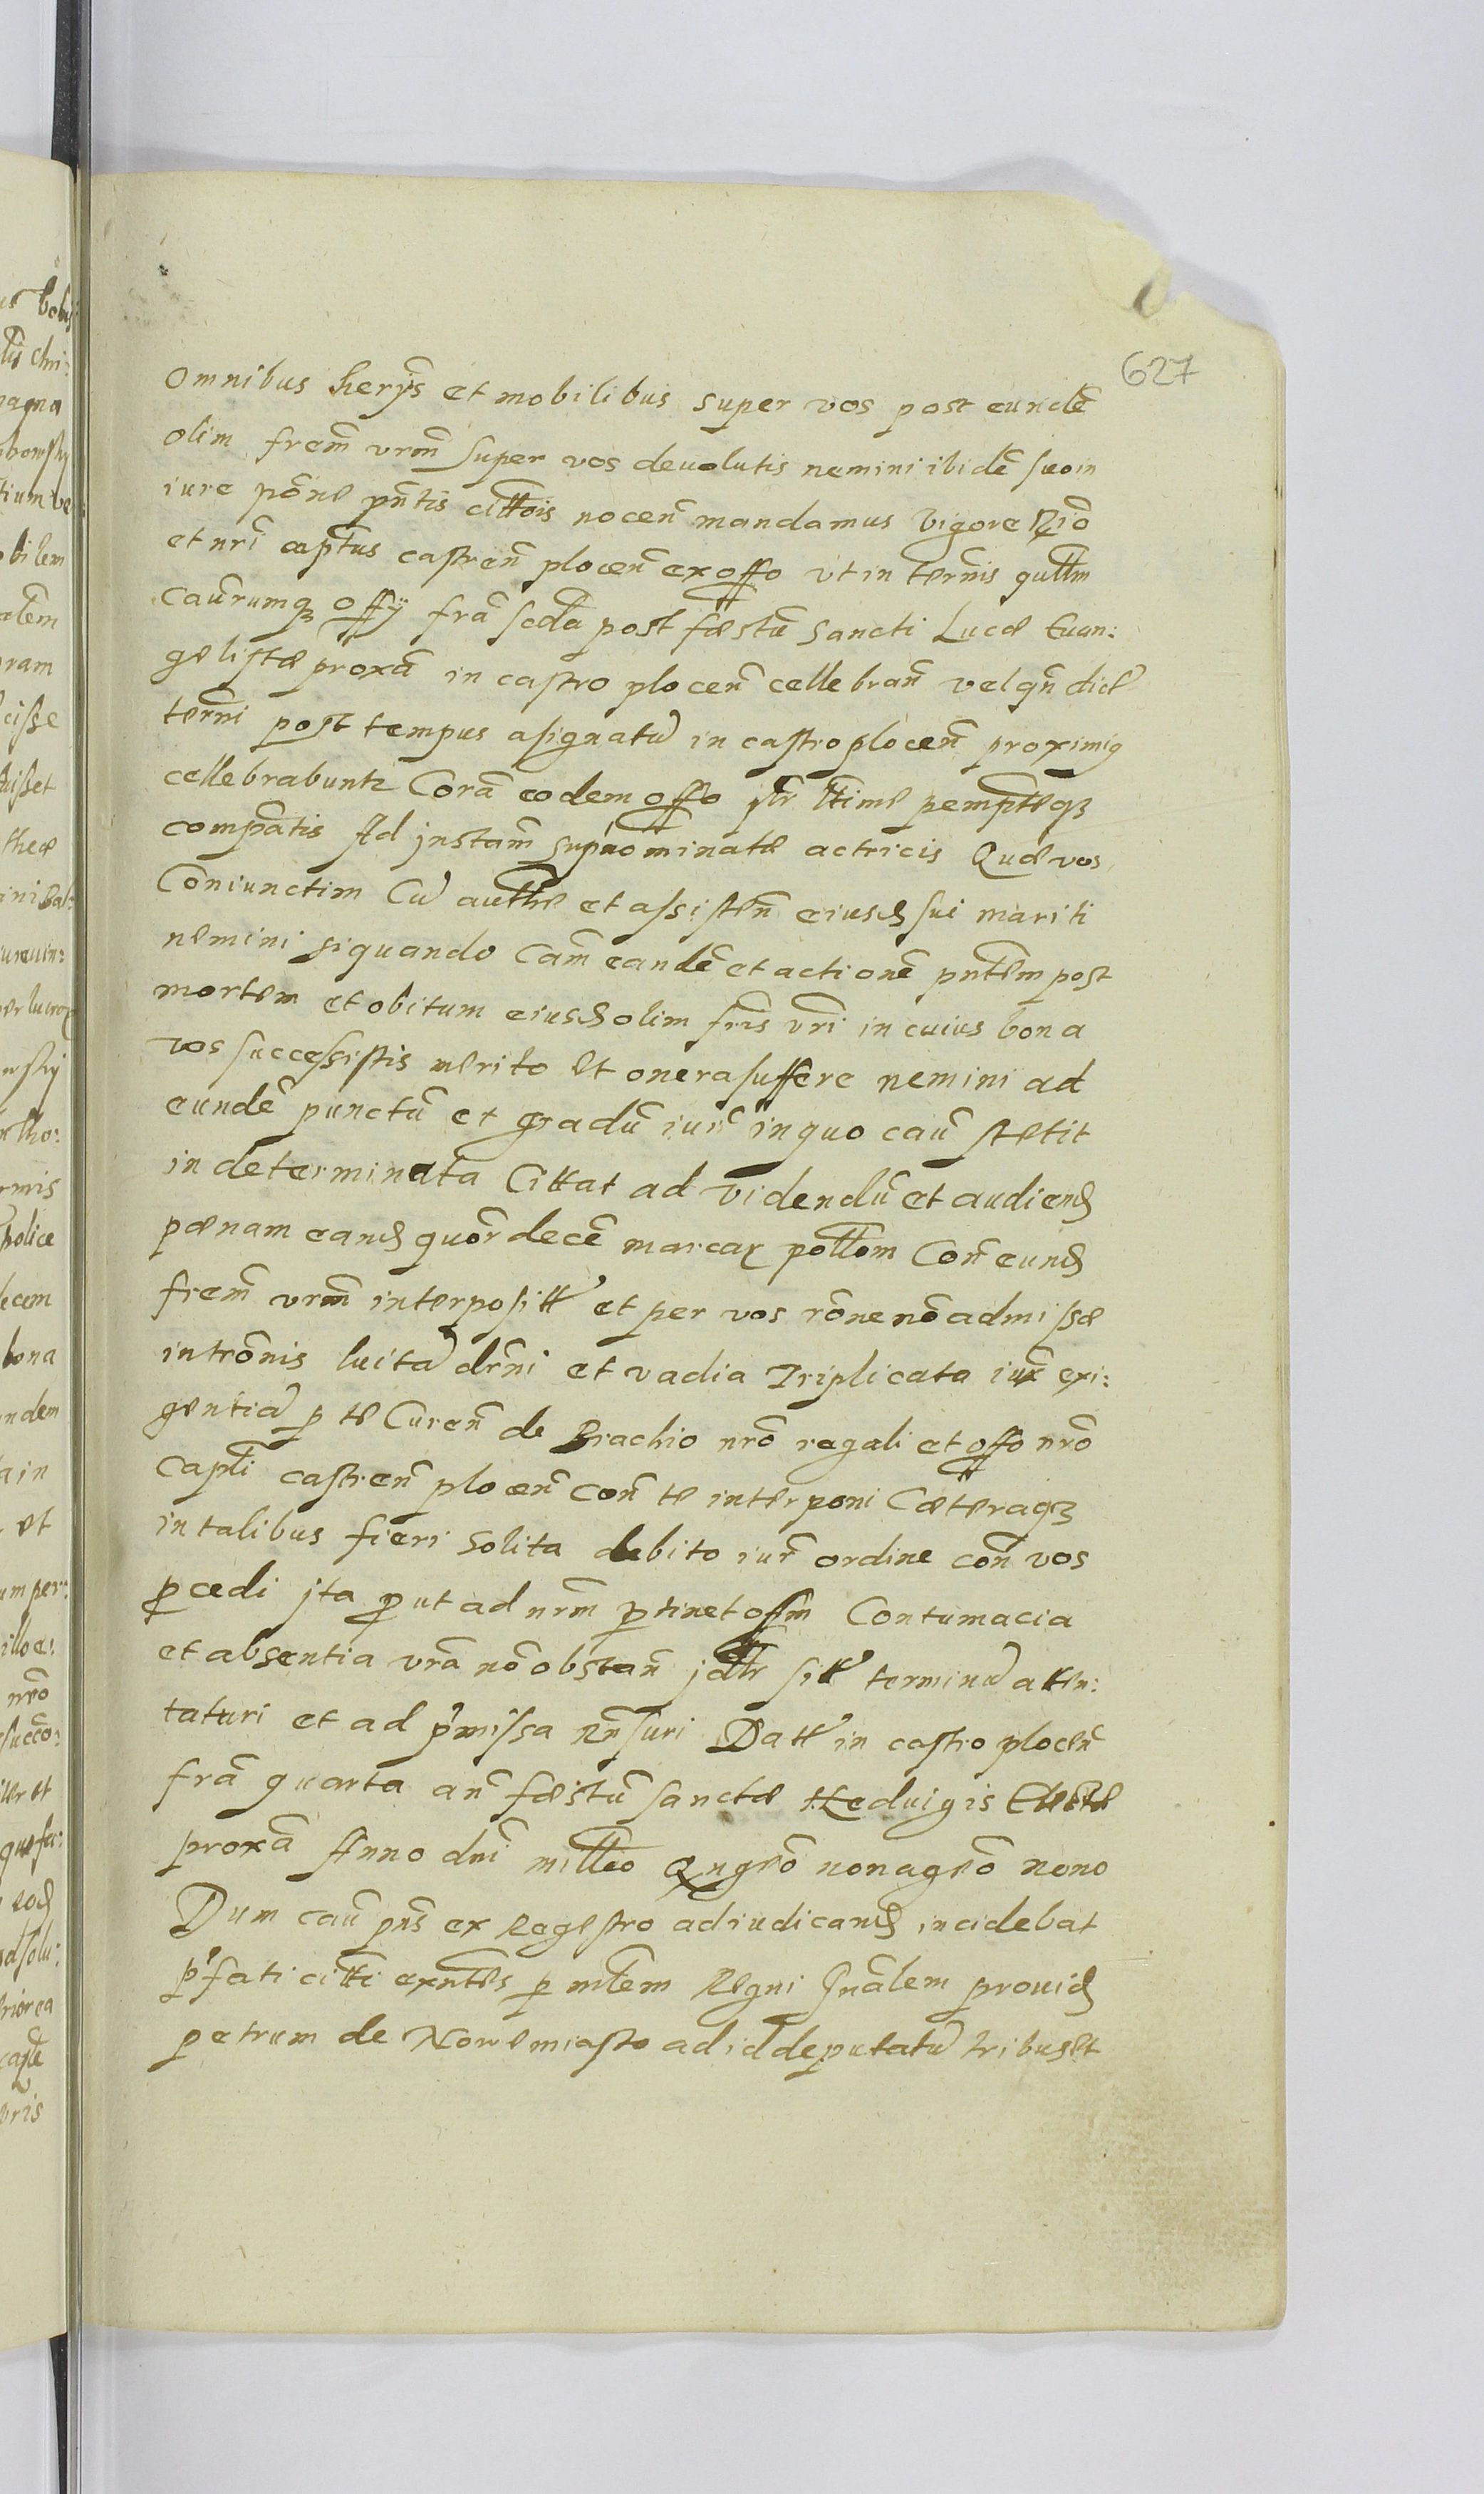 627
omnibus herijs et mobilibus super vos post eundē
olim frem̄ vrm̄ super vos deuolutis nemini ibidē suo in
iure pōne pn̄tis citt̄ois nocen̄ mandamus vigore
et nrī capt̄us castren̄ plocen̄ ex offo vt in term̄is qutt̄m
caur̄umqꝫ offÿ fr̄a scd̄a post fæstū Sancti Lucæ Euan:
gelistæ proxā in castro plocen̄ cellebran̄ vel qn̄ dict
term̄i post tempus asignatū in castro plocen̄ proximiq
cellebrabuntr Corā eodem offo ptr̄ lt̄ime pempt̄eqꝫ
compātis Ad jnstam̄ sup̄nominatæ actricis Quæ vos
Coniunctim Cū auth̄e et assisten̄ eiusd sui mariti
nemini siquando Cam̄ eandē et actionē pn̄tem post
mortem et obitum eiusd olim fris̄ vrī in cuius bona
vos successistis merito et onera sufferre nemini ad
eundē punctū et gradū iur̄ in quo cau̅ stetit
indeterminata Cittat ad videndū et audiend
pænam eand quōr decē marcaꝝ pott̄om Con̄ eund
frem̄ vrm̄ interposit et per vos rōne nō admissæ
intrōnis luitā drn̄i et vadia Triplicata iux̄ exi:
gentiā ꝑ te Curen̄ de Brachio nrō regali et offo nrō
Capt̄i castren̄ plocen̄ con̄ te interponi Cæteraqꝫ
in talibus fieri solita debito iur̄ ordine con̄ vos
ꝓcedi jta ꝓut ad nrm̄ ꝑtinet offm̄ Contumacia
et absentia vrā nō obstan̄ jdr̄ sitt terminū atten:
taturi et ad p̄missa rn̄suri Datt in castro plocen̄
frā quarta an̄ fæstū sanctæ Heduigis Electæ
proxā Anno dnī mill̄eo Qngeō nonageō nono
Dum cau̅ pn̄s ex Regestro adiudicand incidebat
p̄fati citt̄i exn̄tes ꝑ mlēm Regni Gnālem prouid
petrum de Nowemiasto ad id deputatū tribus et